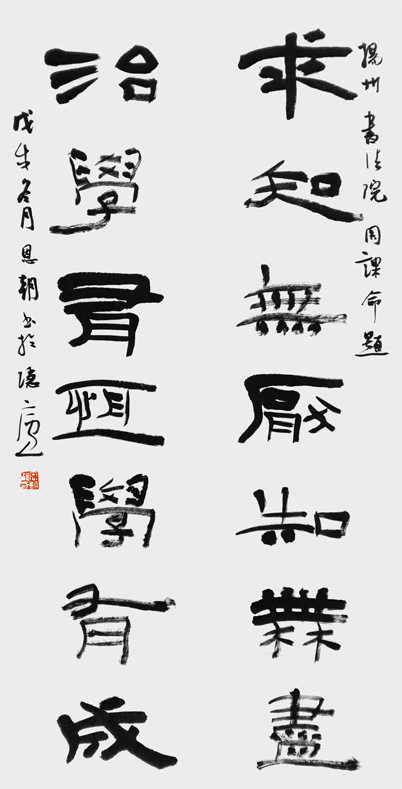 揚州書法院周課命題
求知無厭知無盡
治學有恆學有成
戊戌冬月恩朝書於隱廬